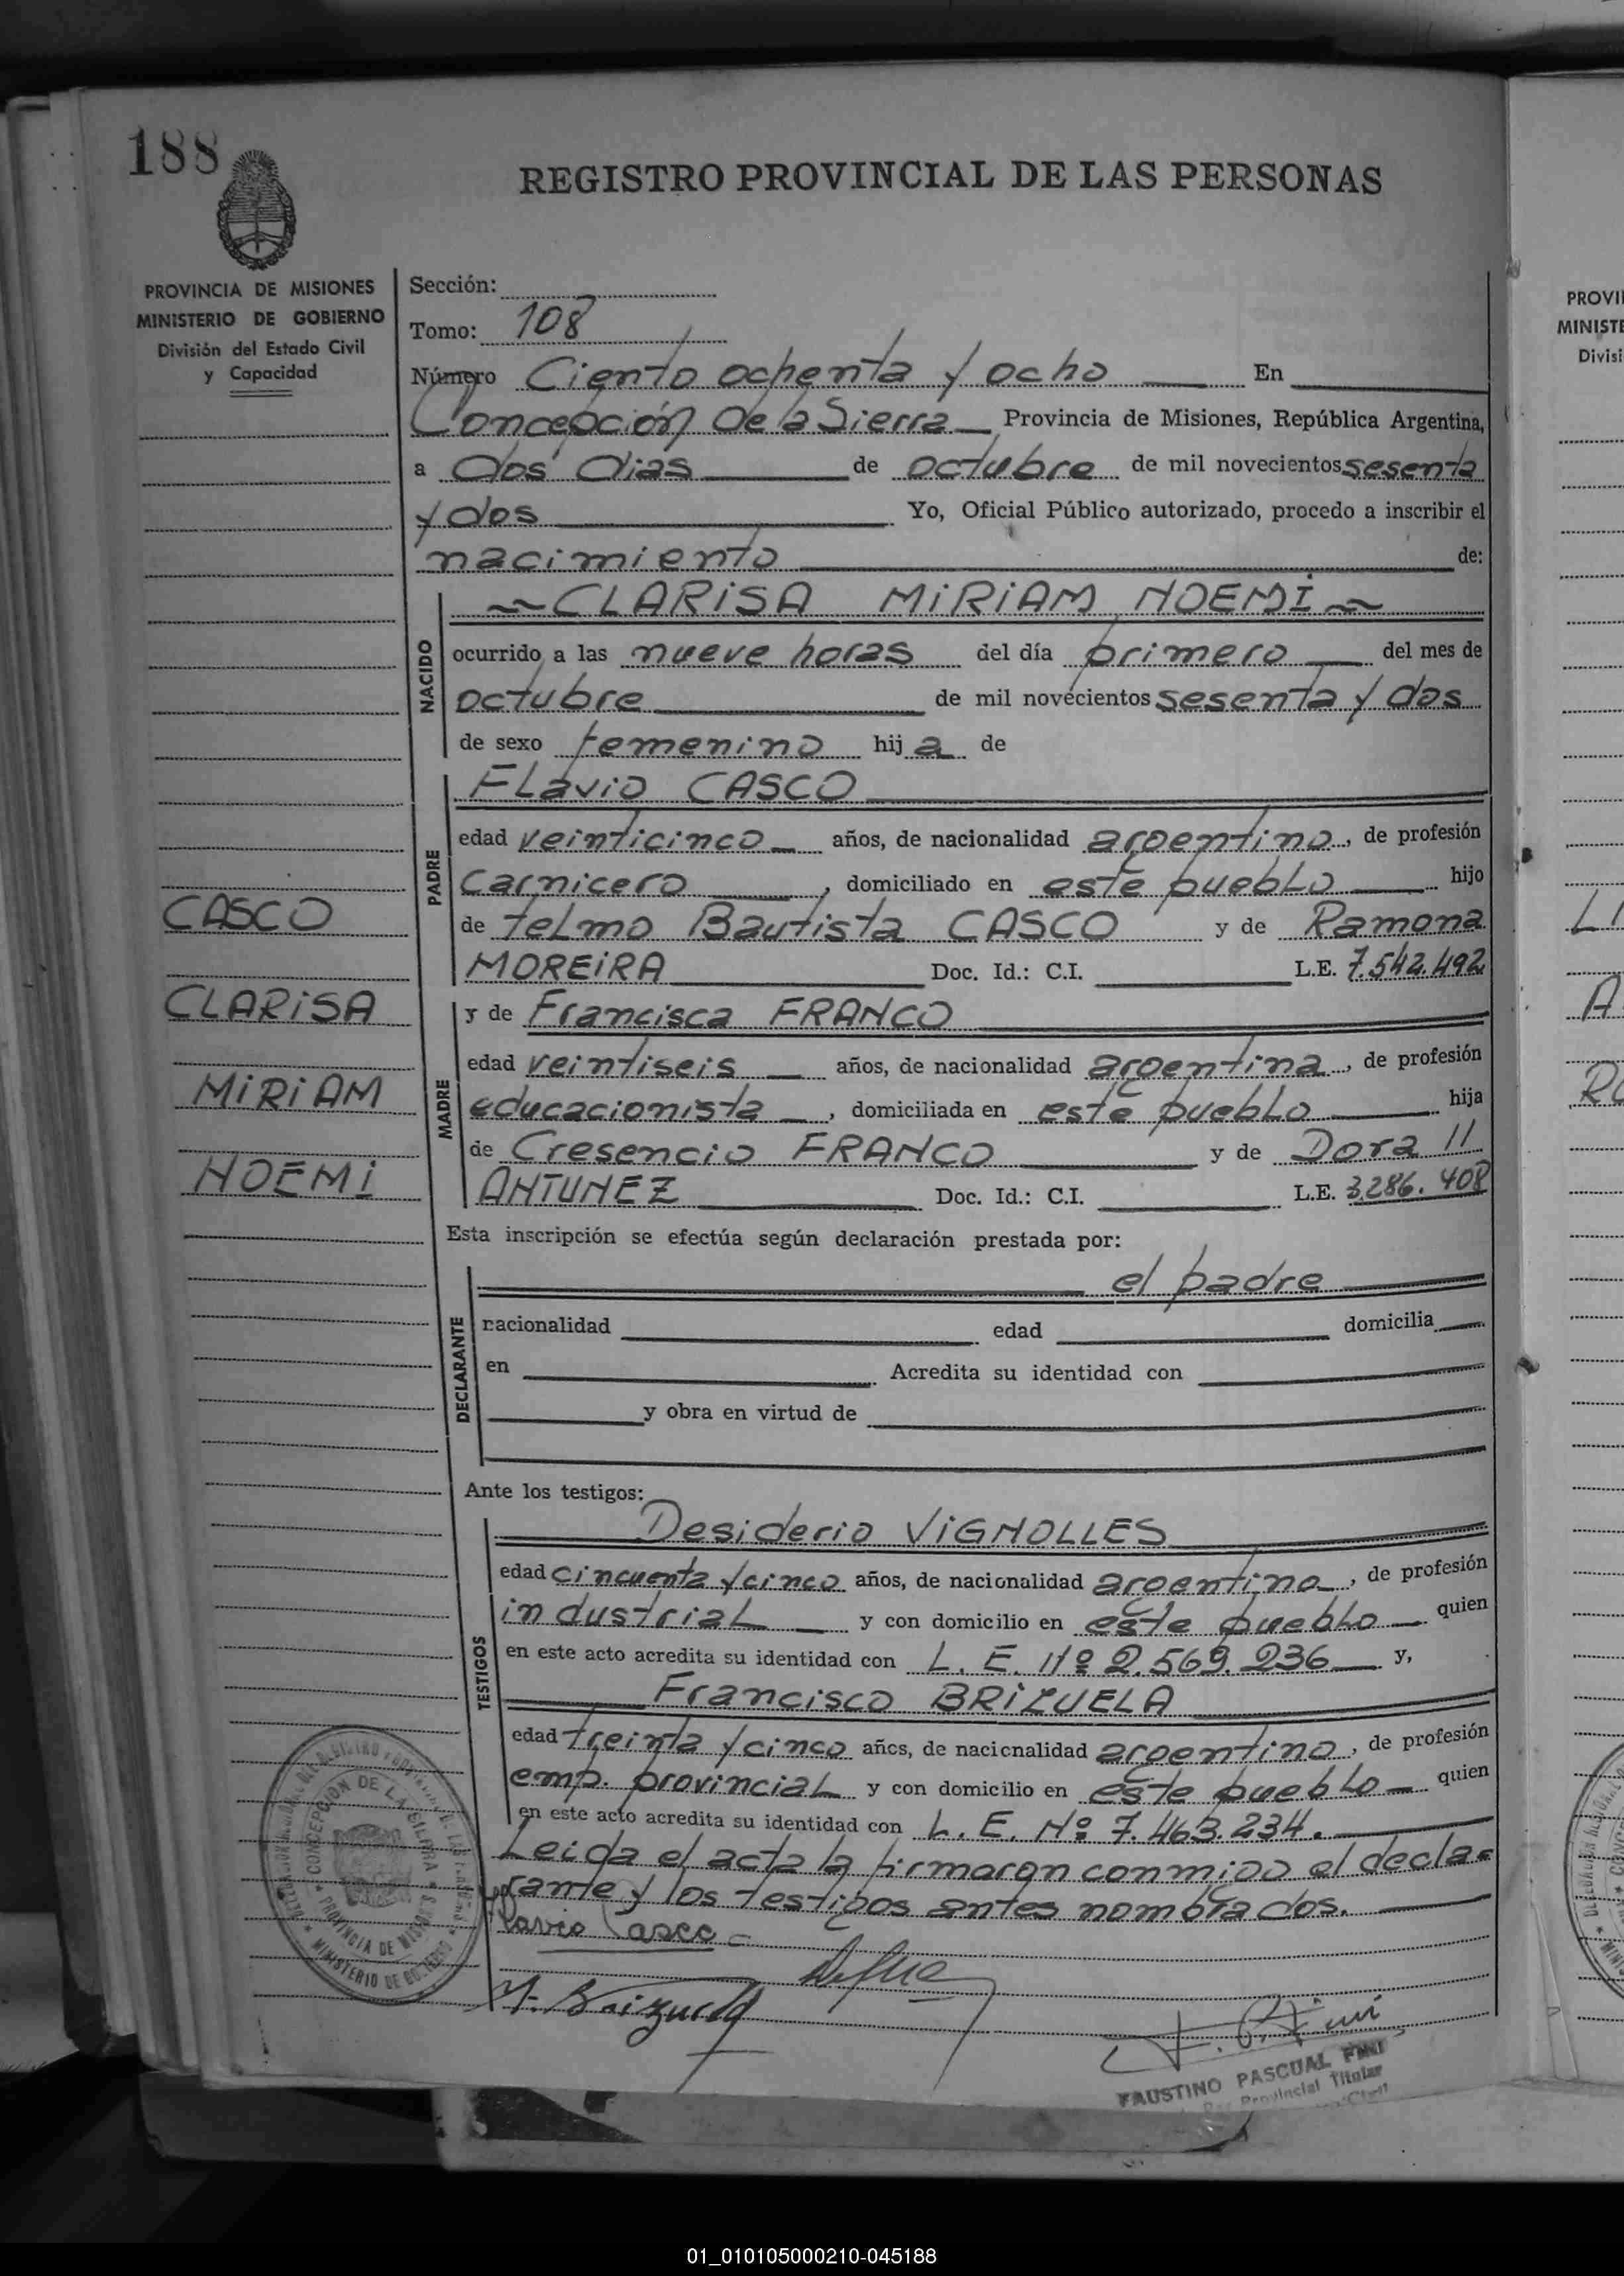 188
REGISTRO PROVINCIAL DE LAS PERSONAS
PROVINCIA DE MISIONES
MINISTERIO DE GOBIERNO
División del Estado Civil
y Capacidad
Sección:
Tomo: 108
Número Ciento ochenta y ocho En
Concepción de la Sierra Provincia de Misiones, República Argentina,
a dos días de octubre de mil novecientos sesenta
y dos Yo, Oficial Público autorizado, procedo a inscribir el
nacimiento de:
NACIDO
CLARISA MIRIAM NOEMI
ocurrido a las nueve horas del día primero del mes de
octubre de mil novecientos sesenta y dos
de sexo femenino hija de
PADRE
Flavio CASCO
edad veinticinco años, de nacionalidad argentino, de profesión
carnicero, domiciliado en este pueblo hijo
de Telmo Bautista CASCO y de Ramona
MOREIRA Doc. Id.: C.I. L.E. 7.542.492
MADRE
y de Francisca FRANCO
edad veintiseis años, de nacionalidad argentina, de profesión
educacionista, domiciliada en este pueblo hija
de Cresencio FRANCO y de Dora
ANTUNEZ Doc. Id.: C.I. L.E. 3.286.408
Esta inscripción se efectúa según declaración prestada por:
DECLARANTE
el padre
nacionalidad edad domicilia
en Acredita su identidad con
y obra en virtud de
Ante los testigos:
TESTIGOS
Desiderio VIGNOLLES
edad cincuenta y cinco años, de nacionalidad argentino, de profesión
industrial y con domicilio en este pueblo quien
en este acto acredita su identidad con L. E. Nº 2.569.236 y,
Francisco BRIZUELA
edad treinta y cinco años, de nacionalidad argentino, de profesión
emp. provincial y con domicilio en este pueblo quien
en este acto acredita su identidad con L. E. Nº 7.463.234.
Leida el acta la firmaron conmigo el decla=
rante y los testigos antes nombrados.
Flavio Casco
CASCO
CLARISA
MIRIAM
NOEMI
CONCEPCION DE LA SIERRA
PROVINCIA DE MISIONES
MINISTERIO DE GOBIERNO
Brizuela
FAUSTINO PASCUAL
Provincial Titular
PROVI
MINISTE
Divisi
01_010105000210-045188